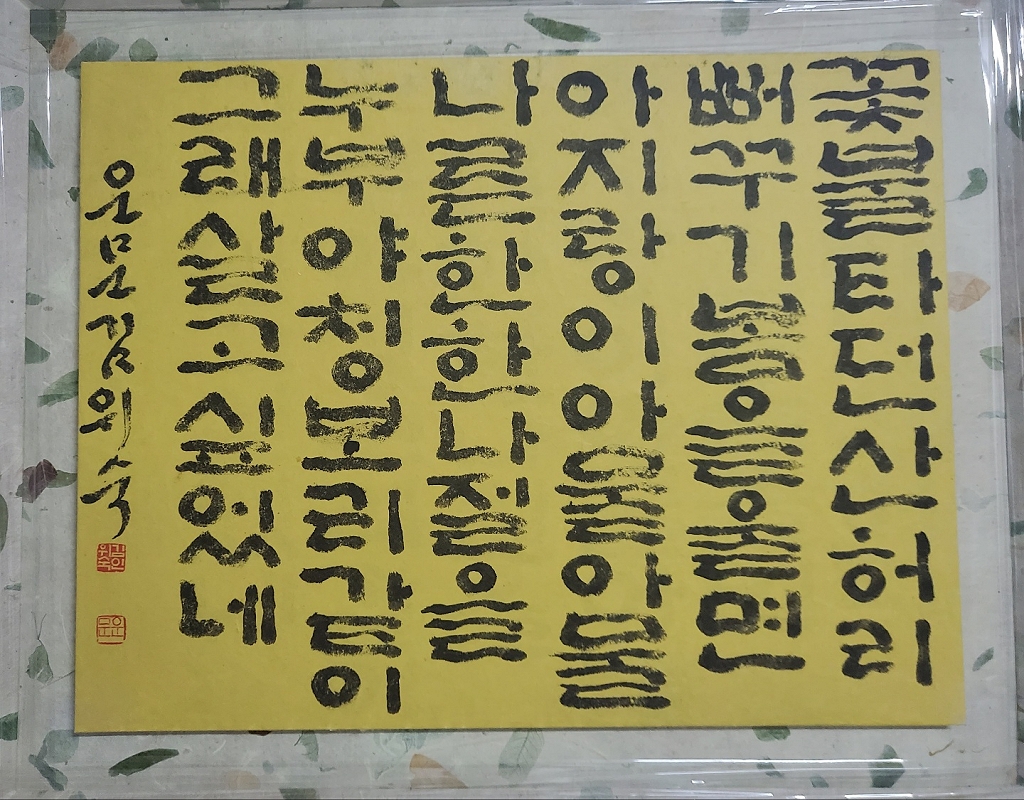 꽃불타던산허리
뻐꾸기 울면
아지랑이아물아물
나른한한나절을
누부야청보리같이
그래살고싶었네
운문김위숙